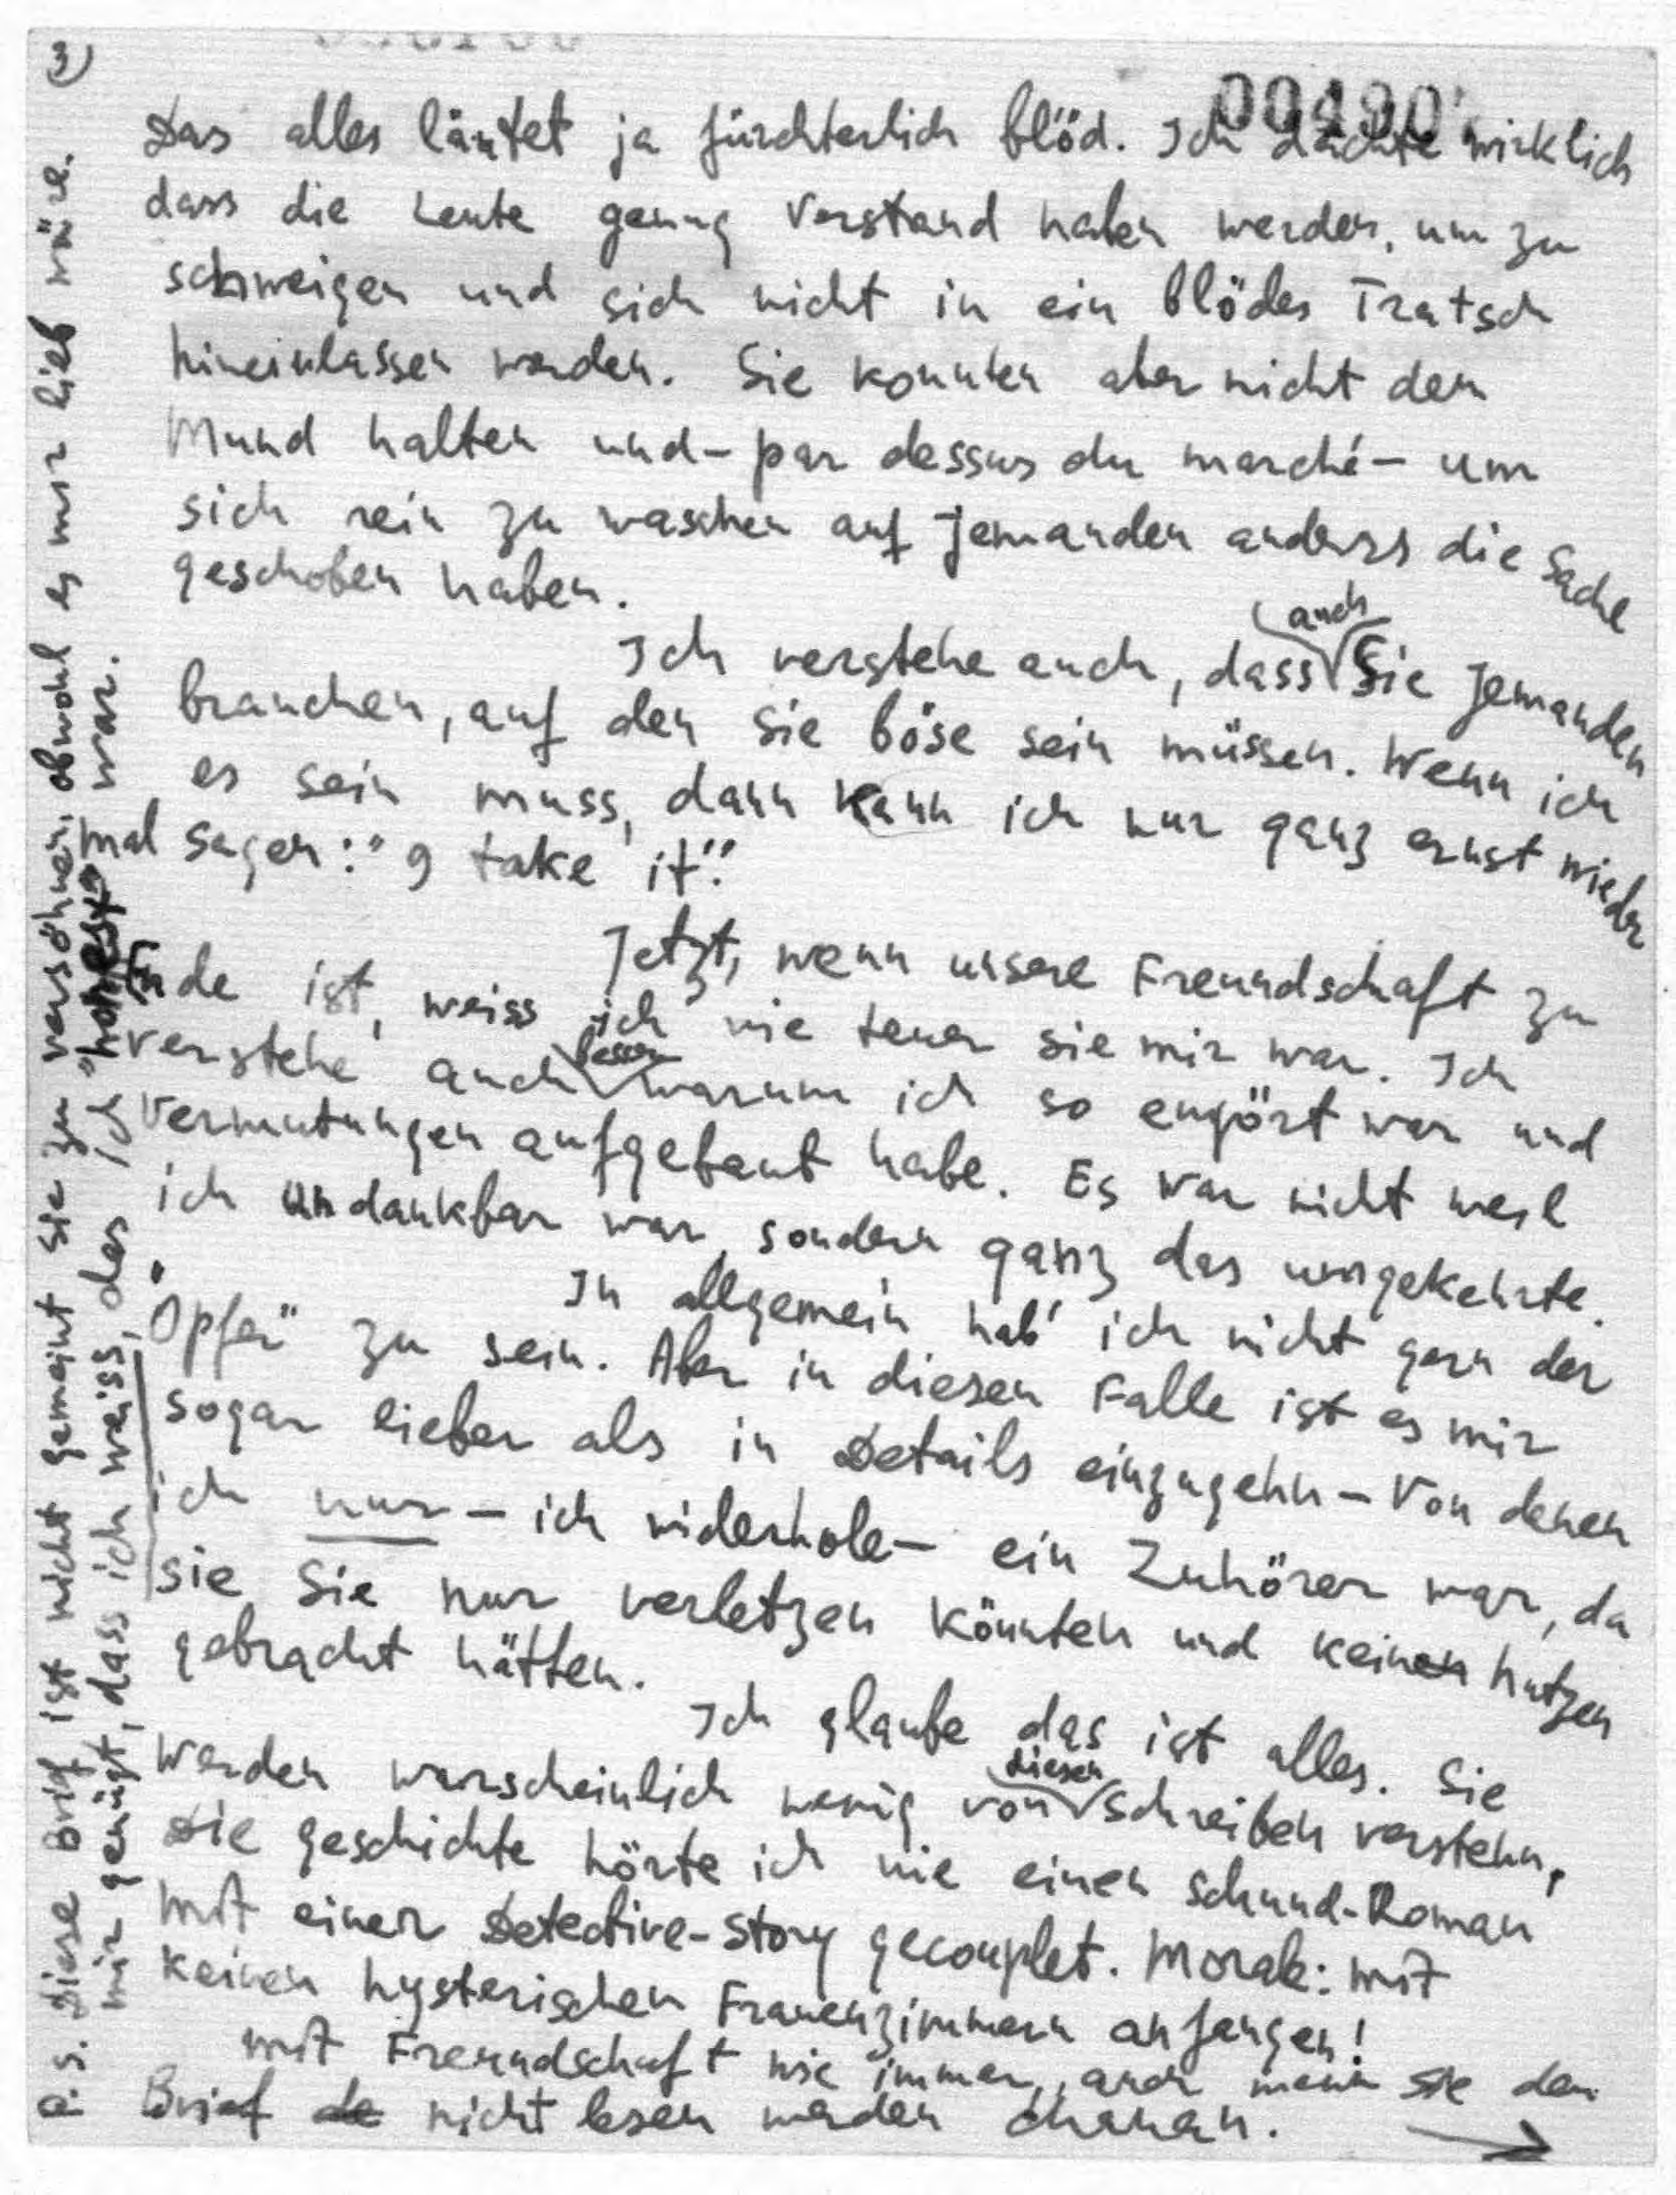 3)
00490
Das alles läutet ja fürchterlich blöd. Ich dachte wirklich
dass die Leute genug Verstand haben werden, um zu
schweigen und sich nicht in ein blödes Tratsch
hineinlassen werden. Sie konnten aber nicht den
Mund halten und - par dessus du marché - um
sich rein zu waschen auf jemanden anders die Sache
geschoben haben.
Ich verstehe auch, dass auch Sie jemanden
brauchen, auf den Sie böse sein müssen. Wenn ich
es sein muss, dann kann ich nur ganz ernst wieder
mal sagen: "I take it".
Jetzt, wenn unsere Freundschaft zu
Ende ist, weiss ich wie teuer sie mir war. Ich
verstehe auch besser warum ich so empört war und
Vermutungen aufgebaut habe. Es war nicht weil
ich undankbar war, sondern ganz das umgekehrte.
In allgemein hab' ich nicht gern der
"Opfer" zu sein. Aber in diesen Falle ist es mir
sogar lieber als in Details einzugehn - Von denen
ich nur - ich widerhole - ein Zuhörer war, da
sie Sie nur verletzen könnten und keinen Nutzen
gebracht hätten.
Ich glaube das ist alles. Sie
werden warscheinlich wenig von diesen schreiben verstehn,
Die geschichte hörte ich wie einen Schund-Roman
mit einer Detective-Story gecouplet. Morale: mit
keinen hysterischen Frauenzimmern anfangen!
mit Freundschaft wie immer, auch wenn sie den
Brief de nicht lesen werden
P.S. Diese Brief ist nicht gemeint sie zu versöhnen, obwohl es mir lieb wäre.
mir genügt, dass ich weiss, das ich "honest" war.